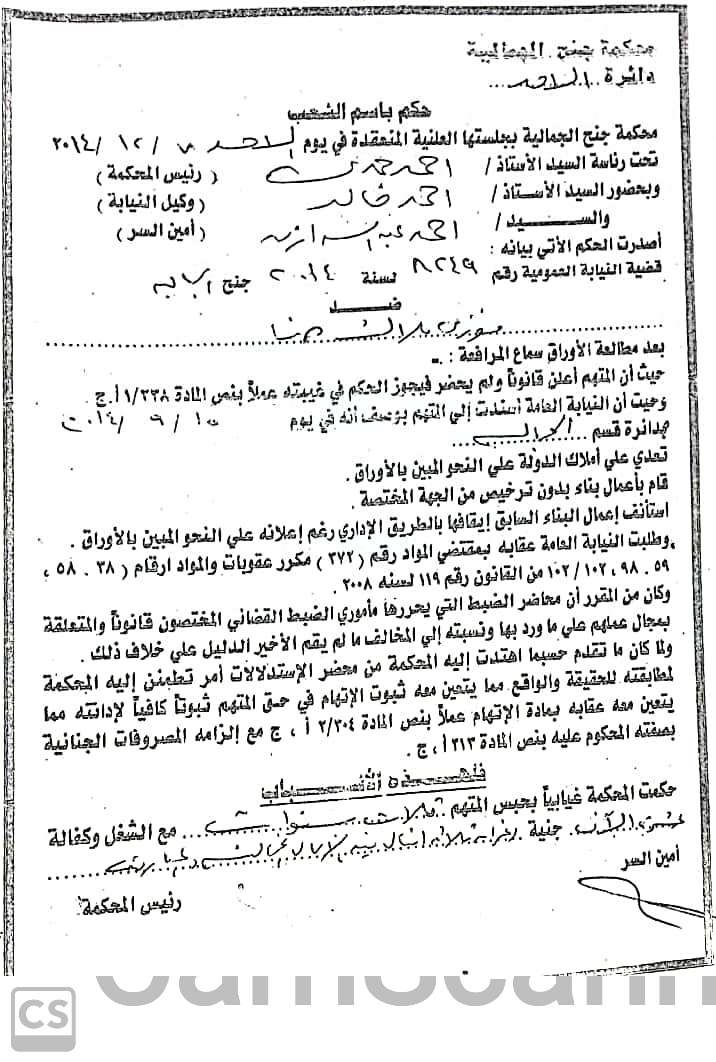 محكمة جنح الجمالية
دائرة الاحد
حكم باسم الشعب
محكمة جنح الجمالية بجلستها العلنية المنعقدة في يوم الاحد ٧ / ١٢ / ٢٠١٤
تحت رئاسة السيد الأستاذ / احمد ( رئيس المحكمة )
وبحضور السيد الأستاذ / احمد خالد ( وكيل النيابة )
والسيد / احمد ( أمين السر )
أصدرت الحكم الأتي بيانه :
قضية النيابة العمومية رقم ٨٢٤٩ لسنة ٢٠١٤ جنح
ضد
بعد مطالعة الأوراق سماع المرافعة : ـ
حيث أن المتهم أعلن قانوناً ولم يحضر فيجوز الحكم في غيبته عملاً بنص المادة ١/٢٣٨ أ. ج .
وحيث أن النيابة العامة أسندت إلي المتهم بوصف أنه في يوم ١٥ / ٩ / ٢٠١٤
بدائرة قسم
تعدي علي أملاك الدولة علي النحو المبين بالأوراق .
قام بأعمال بناء بدون ترخيص من الجهة المختصة .
استأنف إعمال البناء السابق إيقافها بالطريق الإداري رغم إعلانه علي النحو المبين بالأوراق .
وطلبت النيابة العامة عقابه بمقتضي المواد رقم ( ٣٧٢ ) مكرر عقوبات والمواد ارقام ( ٣٨ . ٥٨ ،
٥٩ . ٩٨ ، ١٠٢ / ١٠٢ من القانون رقم ١١٩ لسنه ٢٠٠٨ .
وكان من المقرر أن محاضر الضبط التي يحررها مأموري الضبط القضائي المختصون قانوناً والمتعلقة
بمجال عملهم علي ما ورد بها ونسبته إلي المخالف ما لم يقم الأخير الدليل علي خلاف ذلك .
ولما كان ما تقدم حسبما اهتدت إليه المحكمة من محضر الإستدلالات أمر تطمئن إليه المحكمة
لمطابقته للحقيقة والواقع مما يتعين معه ثبوت الإتهام في حق المتهم ثبوتاً كافياً لإدانته مما
يتعين معه عقابه بمادة الإتهام عملاً بنص المادة ٢/٣٠٤ أ ، ج مع إلزامه المصروفات الجنائية
بصفته المحكوم عليه بنص المادة ٣١٣ أ ، ج .
فلهذه الأسباب
حكمت المحكمة غيابياً بحبس المتهم ثلاث سنوات مع الشغل وكفالة
عشرة الاف جنية
أمين السر
رئيس المحكمة
CS CamScann